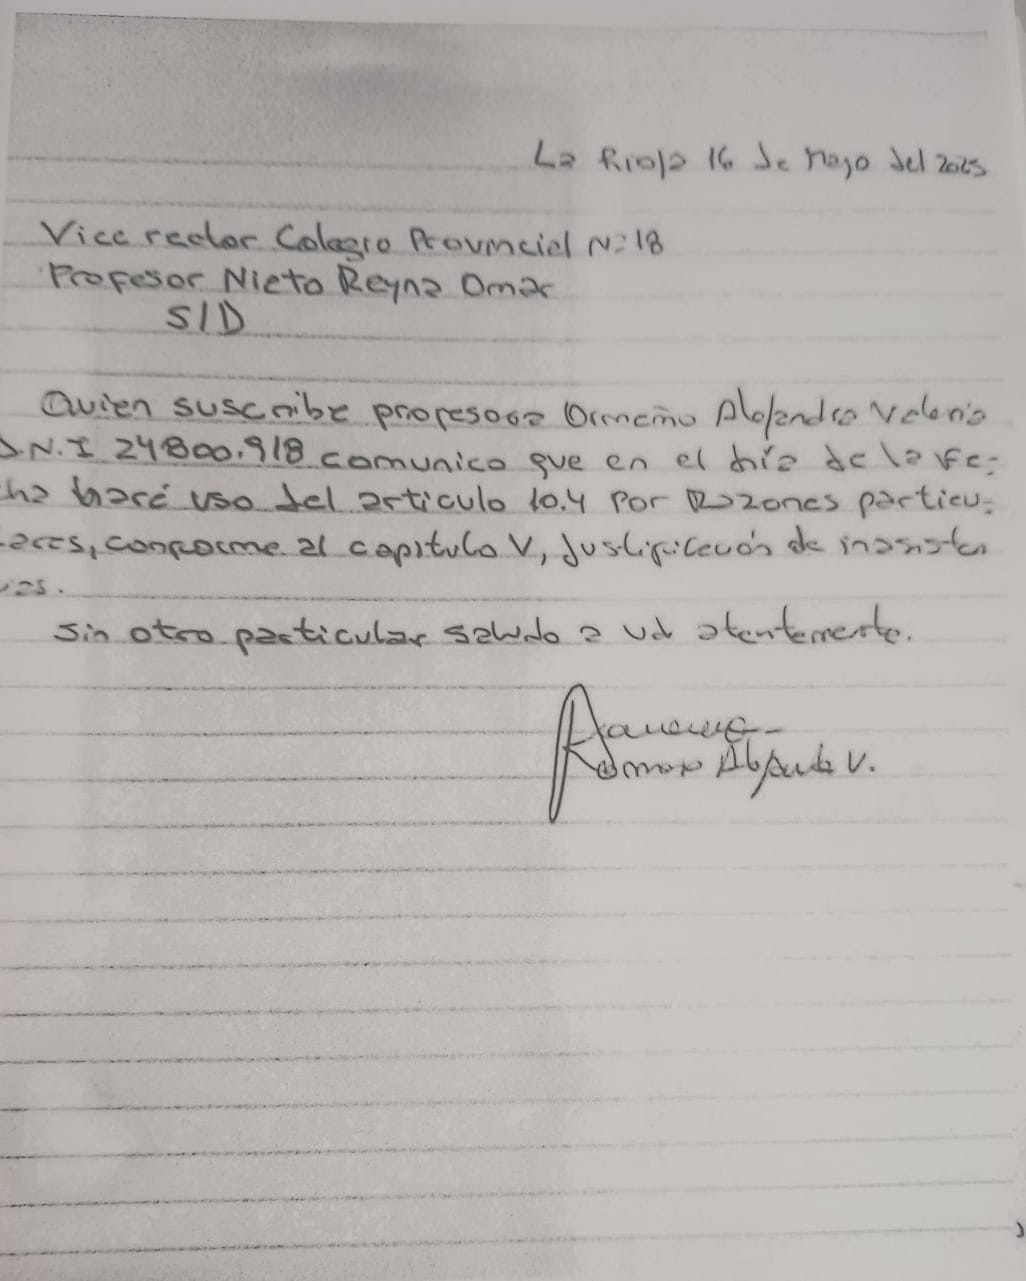 La Rioja 16 de Mayo del 2025
Vice rector Colegio Provincial N=18
Profesor Nieto Reyna Omar
S/D
Quien suscribe profesora Ormeño Alejandra Valeria
D.N.I 24800.918 comunico que en el día de la fe-
cha haré uso del articulo 10.4 por Razones particu-
lares, conforme al capitulo V, Justificación de inasisten
cias.
Sin otro particular saludo a Ud atentemente.
Ormeño Alejandra V.